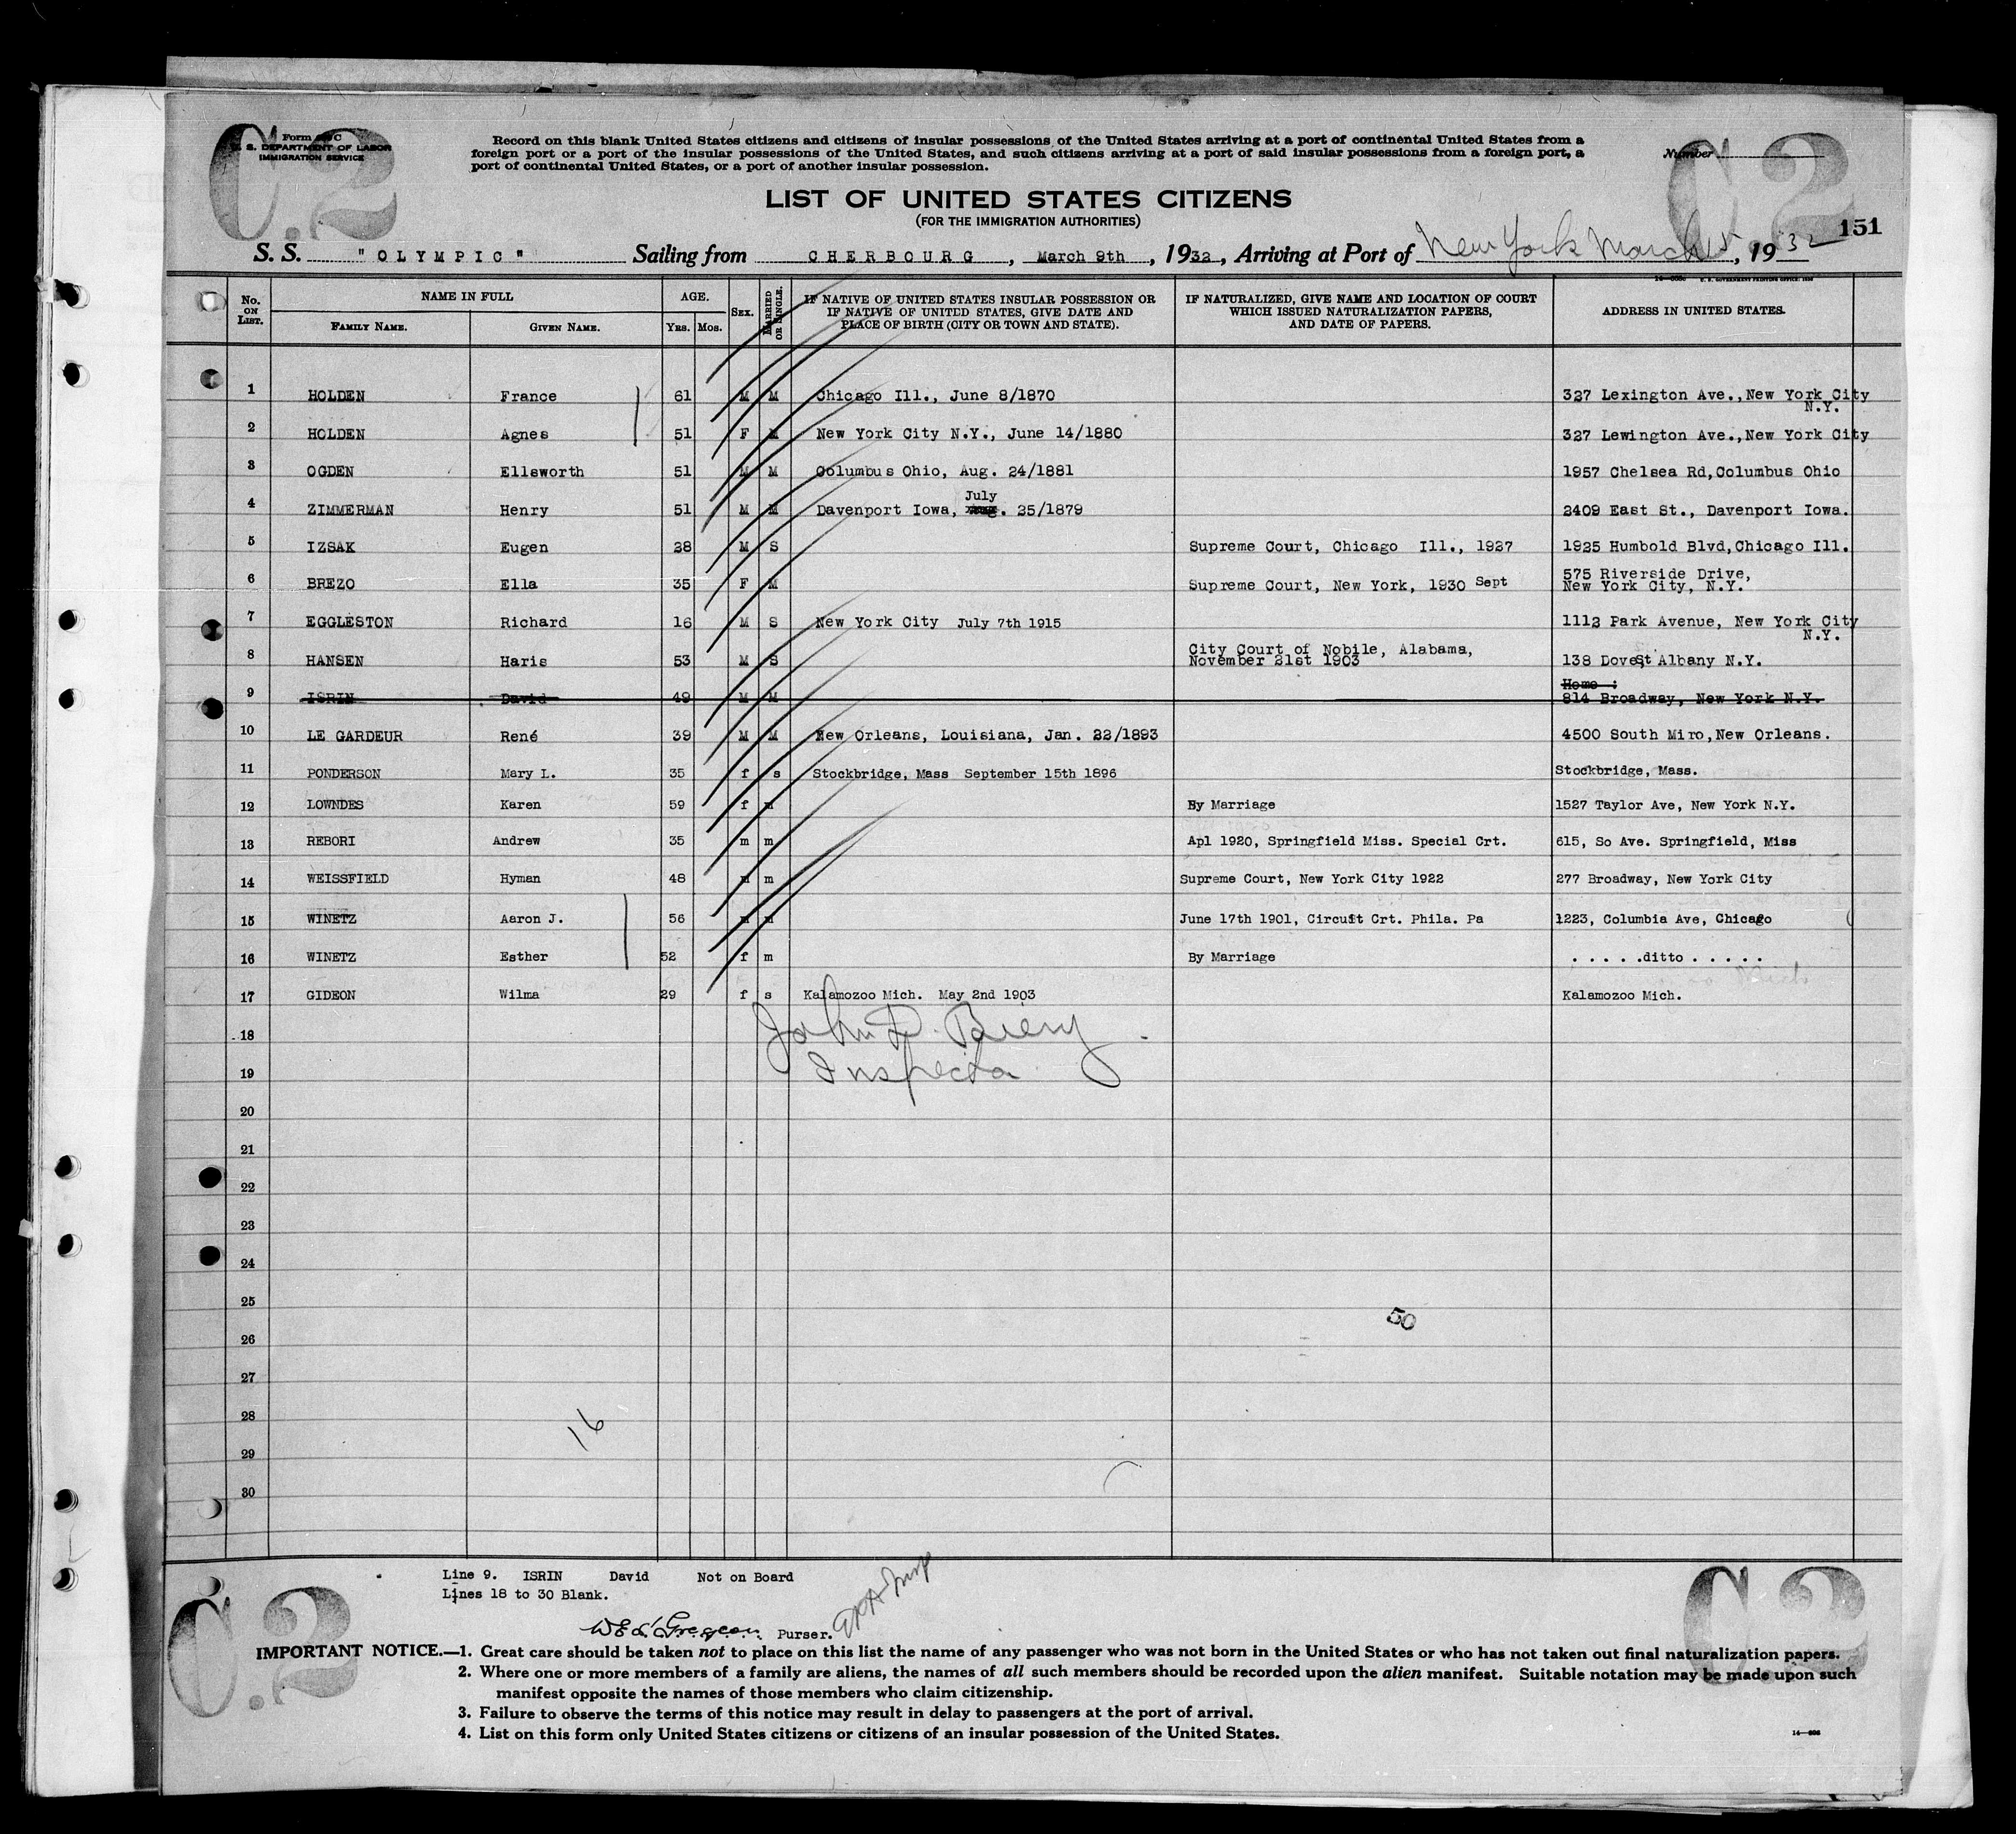 C.2
C.2
Form C
U. S. DEPARTMENT OF LABOR
IMMIGRATION SERVICE
Record on this blank United States citizens and citizens of insular possessions of the United States arriving at a port of continental United States from a
foreign port or a port of the insular possessions of the United States, and such citizens arriving at a port of said insular possessions from a foreign port, a
port of continental United States, or a port of another insular possession.
Number
LIST OF UNITED STATES CITIZENS
(FOR THE IMMIGRATION AUTHORITIES)
151
S. S. "OLYMPIC" Sailing from CHERBOURG, March 9th, 1932, Arriving at Port of New York March 15, 1932
U. S. GOVERNMENT PRINTING OFFICE
No. ON LIST. NAME IN FULL FAMILY NAME. GIVEN NAME. AGE. Yrs. Mos. SEX. MARRIED OR SINGLE. IF NATIVE OF UNITED STATES INSULAR POSSESSION OR IF NATIVE OF UNITED STATES, GIVE DATE AND PLACE OF BIRTH (CITY OR TOWN AND STATE). IF NATURALIZED, GIVE NAME AND LOCATION OF COURT WHICH ISSUED NATURALIZATION PAPERS, AND DATE OF PAPERS. ADDRESS IN UNITED STATES.
1 HOLDEN France 61 M M Chicago Ill., June 8/1870 327 Lexington Ave., New York City
N.Y.
2 HOLDEN Agnes 51 F M New York City N.Y., June 14/1880 327 Lewington Ave., New York City
3 OGDEN Ellsworth 51 M M Columbus Ohio, Aug. 24/1881 1957 Chelsea Rd, Columbus Ohio
July
4 ZIMMERMAN Henry 51 M M Davenport Iowa, Aug. 25/1879 2409 East St., Davenport Iowa.
5 IZSAK Eugen 28 M S Supreme Court, Chicago Ill., 1927 1925 Humbold Blvd, Chicago Ill.
575 Riverside Drive,
6 BREZO Ella 35 F M Supreme Court, New York, 1930 Sept New York City, N.Y.
7 EGGLESTON Richard 16 M S New York City July 7th 1915 1112 Park Avenue, New York City
N.Y.
City Court of Nobile, Alabama,
8 HANSEN Haris 53 M S November 21st 1903 138 Dove St Albany N.Y.
Home :
9 ISRIN David 49 M M 814 Broadway, New York N.Y.
10 LE GARDEUR René 39 M M New Orleans, Louisiana, Jan. 22/1893 4500 South Miro, New Orleans.
11 PONDERSON Mary L. 35 f s Stockbridge, Mass September 15th 1896 Stockbridge, Mass.
12 LOWNDES Karen 59 f m By Marriage 1527 Taylor Ave, New York N.Y.
13 REBORI Andrew 35 m m Apl 1920, Springfield Miss. Special Crt. 615, So Ave. Springfield, Miss
14 WEISSFIELD Hyman 48 m m Supreme Court, New York City 1922 277 Broadway, New York City
15 WINETZ Aaron J. 56 m m June 17th 1901, Circuit Crt. Phila. Pa 1223, Columbia Ave, Chicago
16 WINETZ Esther 52 f m By Marriage . . . . .ditto . . . . .
17 GIDEON Wilma 29 f s Kalamozoo Mich. May 2nd 1903 Kalamozoo Mich.
18 John D.
19 Inspector
20
21
22
23
24
25
26 50
27
28 16
29
30
Line 9. ISRIN David Not on Board
Lines 18 to 30 Blank.
Purser.
IMPORTANT NOTICE.—1. Great care should be taken not to place on this list the name of any passenger who was not born in the United States or who has not taken out final naturalization papers.
2. Where one or more members of a family are aliens, the names of all such members should be recorded upon the alien manifest. Suitable notation may be made upon such
manifest opposite the names of those members who claim citizenship.
3. Failure to observe the terms of this notice may result in delay to passengers at the port of arrival.
4. List on this form only United States citizens or citizens of an insular possession of the United States.
C.2
C.2